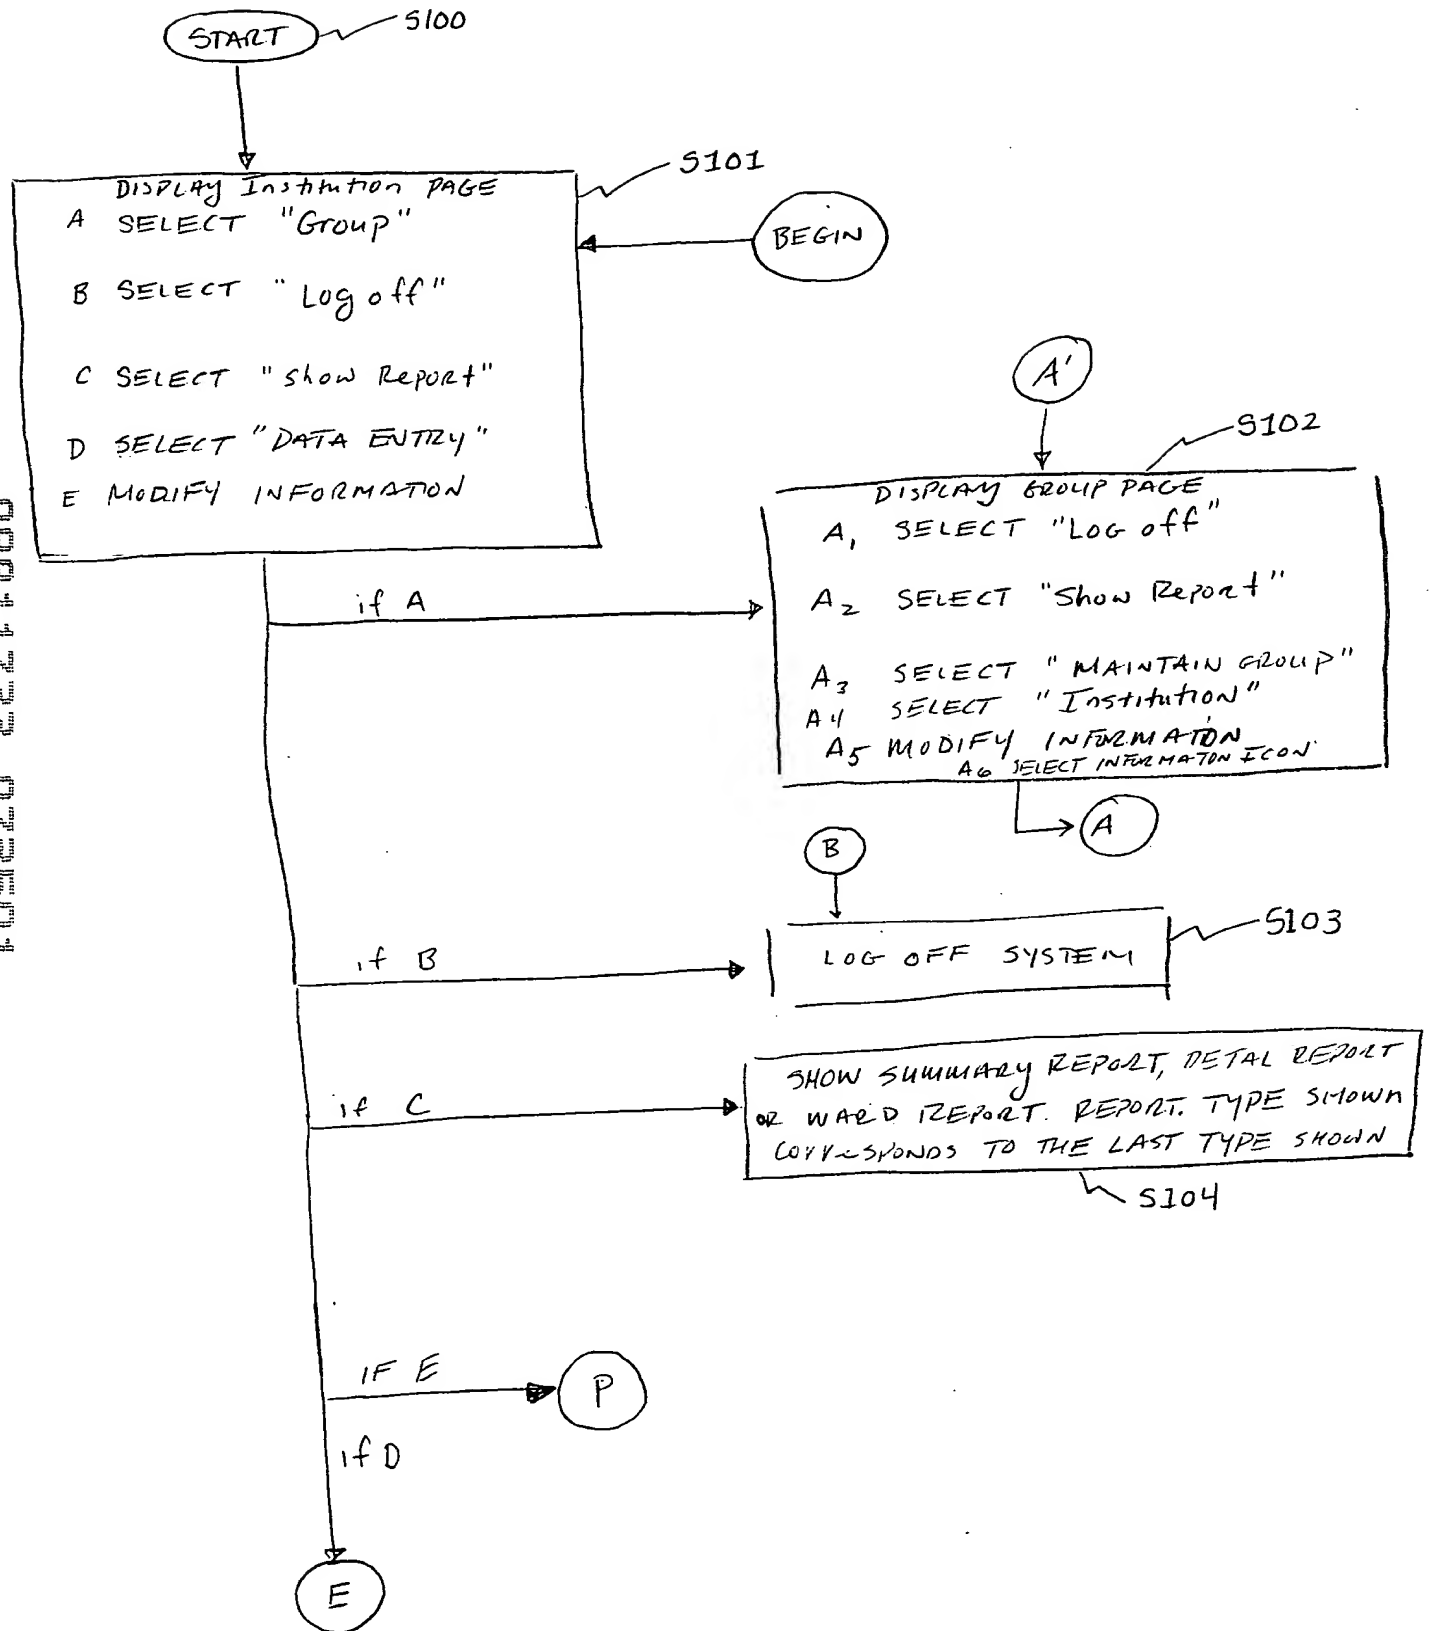 START
S100
S101
DISPLAY Institution PAGE
A SELECT "Group"
B SELECT "Log off"
C SELECT "show Report"
D SELECT "DATA ENTRY"
E MODIFY INFORMATION
BEGIN
A'
S102
DISPLAY GROUP PAGE
A1 SELECT "LOG off"
A2 SELECT "Show Report"
A3 SELECT "MAINTAIN GROUP"
A4 SELECT "Institution"
A5 MODIFY INFORMATION
A6 SELECT INFORMATON ICON
if A
A
B
S103
LOG OFF SYSTEM
if B
SHOW SUMMARY REPORT, DETAL REPORT
OR WARD REPORT. REPORT. TYPE SHOWN
CORRESPONDS TO THE LAST TYPE SHOWN
if C
S104
IF E
P
if D
E